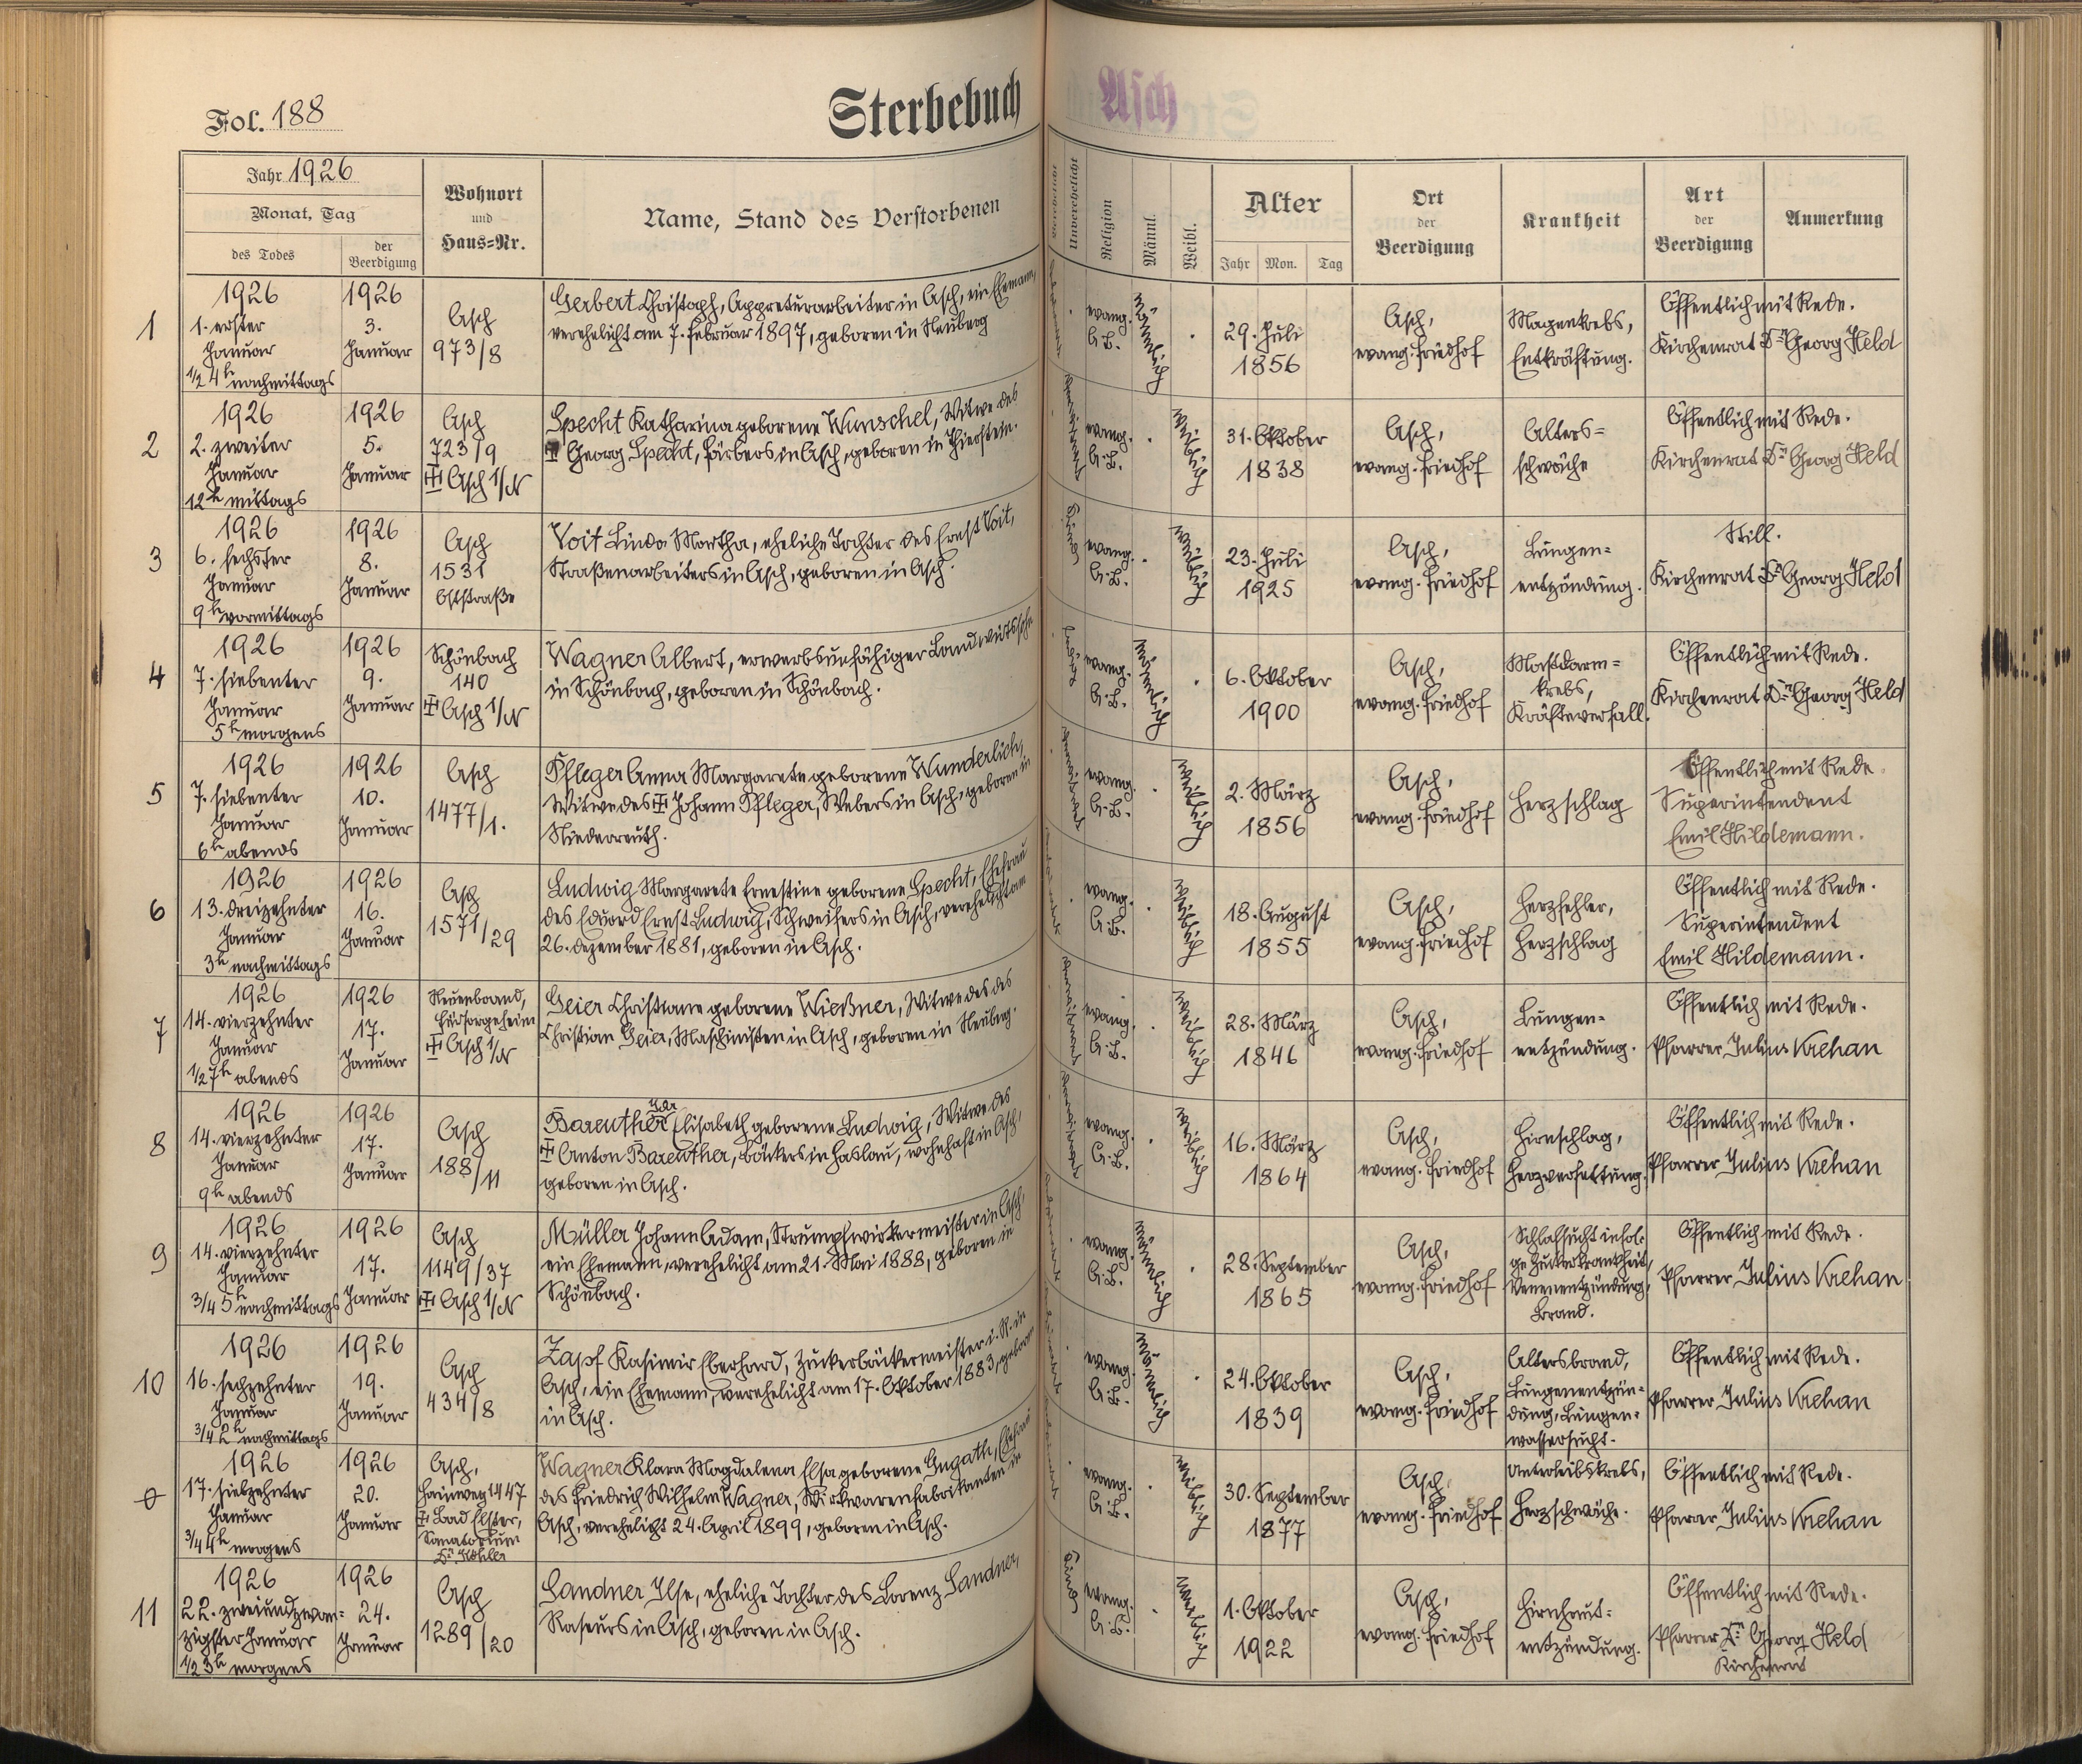 Fol. 188
Sterbebuch
Asch
Jahr 1926
Monat, Tag
des Todes
der
Beerdigung
Wohnort
und
Haus=Nr.
Name, Stand des Verstorbenen
Unverehelicht
Religion
Männl.
Weibl.
Alter
Jahr Mon. Tag
Ort
der
Beerdigung
Krankheit
Art
der
Beerdigung
Anmerkung
1
1926
1. erster
Januar
1/2 4h nachmittags
1926
3.
Januar
Asch
973/8
Gerbert Christoph, Appreturarbeiter in Asch, ein Ehemann,
verehelicht am 7. Februar 1897, geboren in Neuberg
evang.
A.B.
männlich
29. Juli
1856
Asch,
evang. Friedhof
Magenkrebs,
Entkräftung.
Öffentlich mit Rede.
Kirchenrat Dr. Georg Held
2
1926
2. zweiter
Januar
12h mittags
1926
5.
Januar
Asch
723/9
Asch 1/N
Specht Katharina geborene Wunschel, Witwe des
Georg Specht, Färbers in Asch, geboren in Thierstein.
evang.
A.B.
weiblich
31. Oktober
1838
Asch,
evang. Friedhof
Alters=
schwäche
Öffentlich mit Rede.
Kirchenrat Dr. Georg Held
3
1926
6. sechster
Januar
9h vormittags
1926
8.
Januar
Asch
1531
Oststraße
Voit Linda Martha, eheliche Tochter des Ernst Voit,
Straßenarbeiters in Asch, geboren in Asch.
Kind
evang.
A.B.
weiblich
23. Juli
1925
Asch,
evang. Friedhof
Lungen=
entzündung.
Still.
Kirchenrat Dr. Georg Held
4
1926
7. siebenter
Januar
5h morgens
1926
9.
Januar
Schönbach
140
Asch 1/N
Wagner Albert, erwerbsunfähiger
in Schönbach, geboren in Schönbach.
ledig
evang.
A.B.
männlich
6. Oktober
1900
Asch,
evang. Friedhof
Mastdarm=
krebs,
Kräfteverfall.
Öffentlich mit Rede.
Kirchenrat Dr. Georg Held
5
1926
7. siebenter
Januar
6h abends
1926
10.
Januar
Asch
1477/1.
Pfleger Anna Margarete geborene Wunderlich,
Witwe des Johann Pfleger, Webers in Asch, geboren in
Niederreuth.
evang.
A.B.
weiblich
2. März
1856
Asch,
evang. Friedhof
Herzschlag
Öffentlich mit Rede.
Superintendent
Emil Hildemann.
6
1926
13. dreizehnter
Januar
3h nachmittags
1926
16.
Januar
Asch
1571/29
Ludwig Margarete Ernestine geborene Specht, Ehefrau
des Eduard Ernst Ludwig, Schweifers in Asch, verehelicht am
26. Dezember 1881, geboren in Asch.
evang.
A.B.
weiblich
18. August
1855
Asch,
evang. Friedhof
Herzfehler,
Herzschlag
Öffentlich mit Rede.
Superintendent
Emil Hildemann.
7
1926
14. vierzehnter
Januar
1/2 7h abends
1926
17.
Januar
Neuenbrand,
Fürsorgeheim
Asch 1/N
Geier Christiane geborene Wießner, Witwe des des
Christian Geier, Maschinisten in Asch, geboren in Neuberg.
evang.
A.B.
weiblich
28. März
1846
Asch,
evang. Friedhof
Lungen=
entzündung.
Öffentlich mit Rede.
Pfarrer Julius Krehan
8
1926
14. vierzehnter
Januar
9h abends
1926
17.
Januar
Asch
188/11
Ida
Bareuther Elisabeth geborene Ludwig, Witwe des
Anton Bareuther, Bäckers in Haslau, wohnhaft in Asch,
geboren in Asch.
evang.
A.B.
weiblich
16. März
1864
Asch,
evang. Friedhof
Hirnschlag,
Herzverfettung.
Öffentlich mit Rede.
Pfarrer Julius Krehan
9
1926
14. vierzehnter
Januar
3/4 5h nachmittags
1926
17.
Januar
Asch
1149/37
Asch 1/N
Müller Johann Adam, Strumpfwirkermeister in Asch,
ein Ehemann, verehelicht am 21. Mai 1888, geboren in
Schönbach.
evang.
A.B.
männlich
28. September
1865
Asch,
evang. Friedhof
Schlafsucht infol=
ge Zuckerkrankheit,
Venenentzündung,
Brand.
Öffentlich mit Rede.
Pfarrer Julius Krehan
10
1926
16. sechzehnter
Januar
3/4 2h nachmittags
1926
19.
Januar
Asch
434/8
Zapf Kasimir Eberhard, Zuckerbäckermeister i. R. in
Asch, ein Ehemann, verehelicht am 17. Oktober 1883, geboren
in Asch.
evang.
A.B.
männlich
24. Oktober
1839
Asch,
evang. Friedhof
Altersbrand,
Lungenentzün=
dung, Lungen=
wassersucht.
Öffentlich mit Rede.
Pfarrer Julius Krehan
1926
17. siebzehnter
Januar
3/4 4h morgens
1926
20.
Januar
Asch,
Hainweg 1447
Bad Elster,
Sanatorium
Dr. Köhler
Wagner Klara Magdalena Elsa geborene Gugath, Ehefrau
des Friedrich Wilhelm Wagner, Wirkwarenfabrikanten in
Asch, verehelicht 24. April 1899, geboren in Asch.
evang.
A.B.
weiblich
30. September
1877
Asch,
evang. Friedhof
Unterleibskrebs,
Herzschwäche.
Öffentlich mit Rede.
Pfarrer Julius Krehan
11
1926
22. zweiundzwan=
zigster Januar
1/2 3h morgens
1926
24.
Januar
Asch
1289/20
Sandner Ilse, eheliche Tochter des Lorenz Sandner,
Raseurs in Asch, geboren in Asch.
Kind
evang.
A.B.
weiblich
1. Oktober
1922
Asch,
evang. Friedhof
Hirnhaut=
entzündung.
Öffentlich mit Rede.
Pfarrer Dr. Georg Held
Kirchenrat